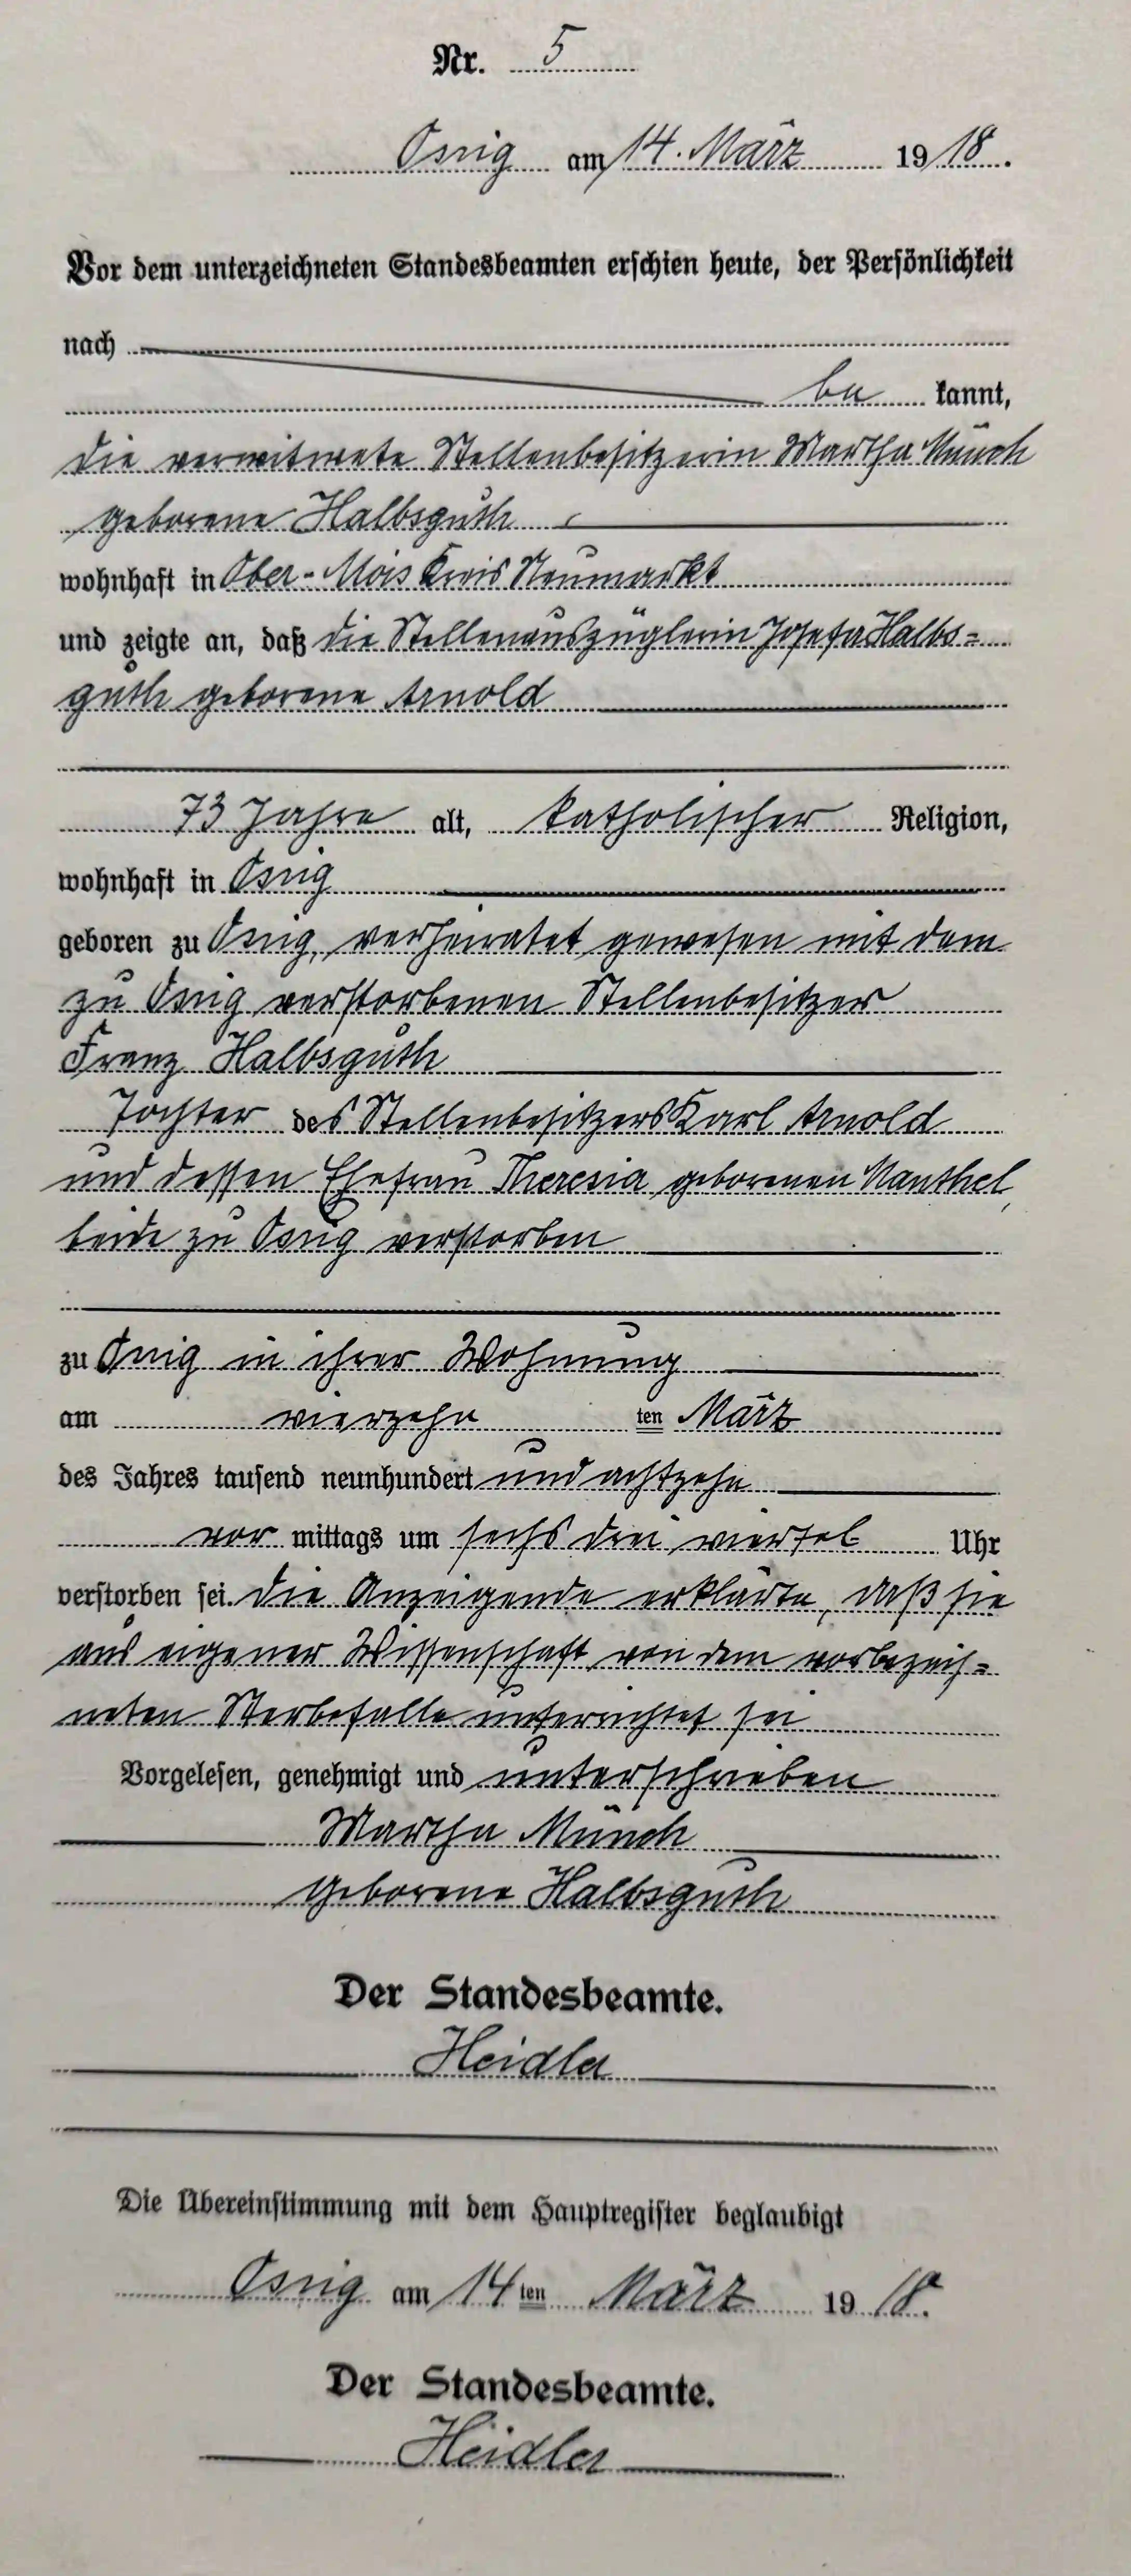 Nr. 5
Ossig am 14. März 1918.
Vor dem unterzeichneten Standesbeamten erschien heute, der Persönlichkeit
nach
be kannt,
die verwitwete Stellenbesitzerin Martha Münch
geborene Halbsguth
wohnhaft in Ober-Mois Kreis Neumarkt
und zeigte an, daß die Stellenauszüglerin Josefa Halbs=
guth geborene Arnold
73 Jahre alt, katholischer Religion,
wohnhaft in Ossig
geboren zu Ossig, verheiratet gewesen mit dem
zu Ossig verstorbenen Stellenbesitzer
Franz Halbsguth
Tochter des Stellenbesitzers Karl Arnold
und dessen Ehefrau Theresia geborenen Manthel,
beide zu Ossig verstorben
zu Ossig in ihrer Wohnung
am vierzehn ten März
des Jahres tausend neunhundert und achtzehn
vor mittags um sechs drei viertel Uhr
verstorben sei. Die Anzeigende erklärte, daß sie
aus eigener Wissenschaft von dem vorbezeich=
neten Sterbefalle unterrichtet sei
Vorgelesen, genehmigt und unterschrieben
Martha Münch
geborene Halbsguth
Der Standesbeamte.
Heidler
Die Übereinstimmung mit dem Hauptregister beglaubigt
Ossig am 14ten März 1918.
Der Standesbeamte.
Heidler